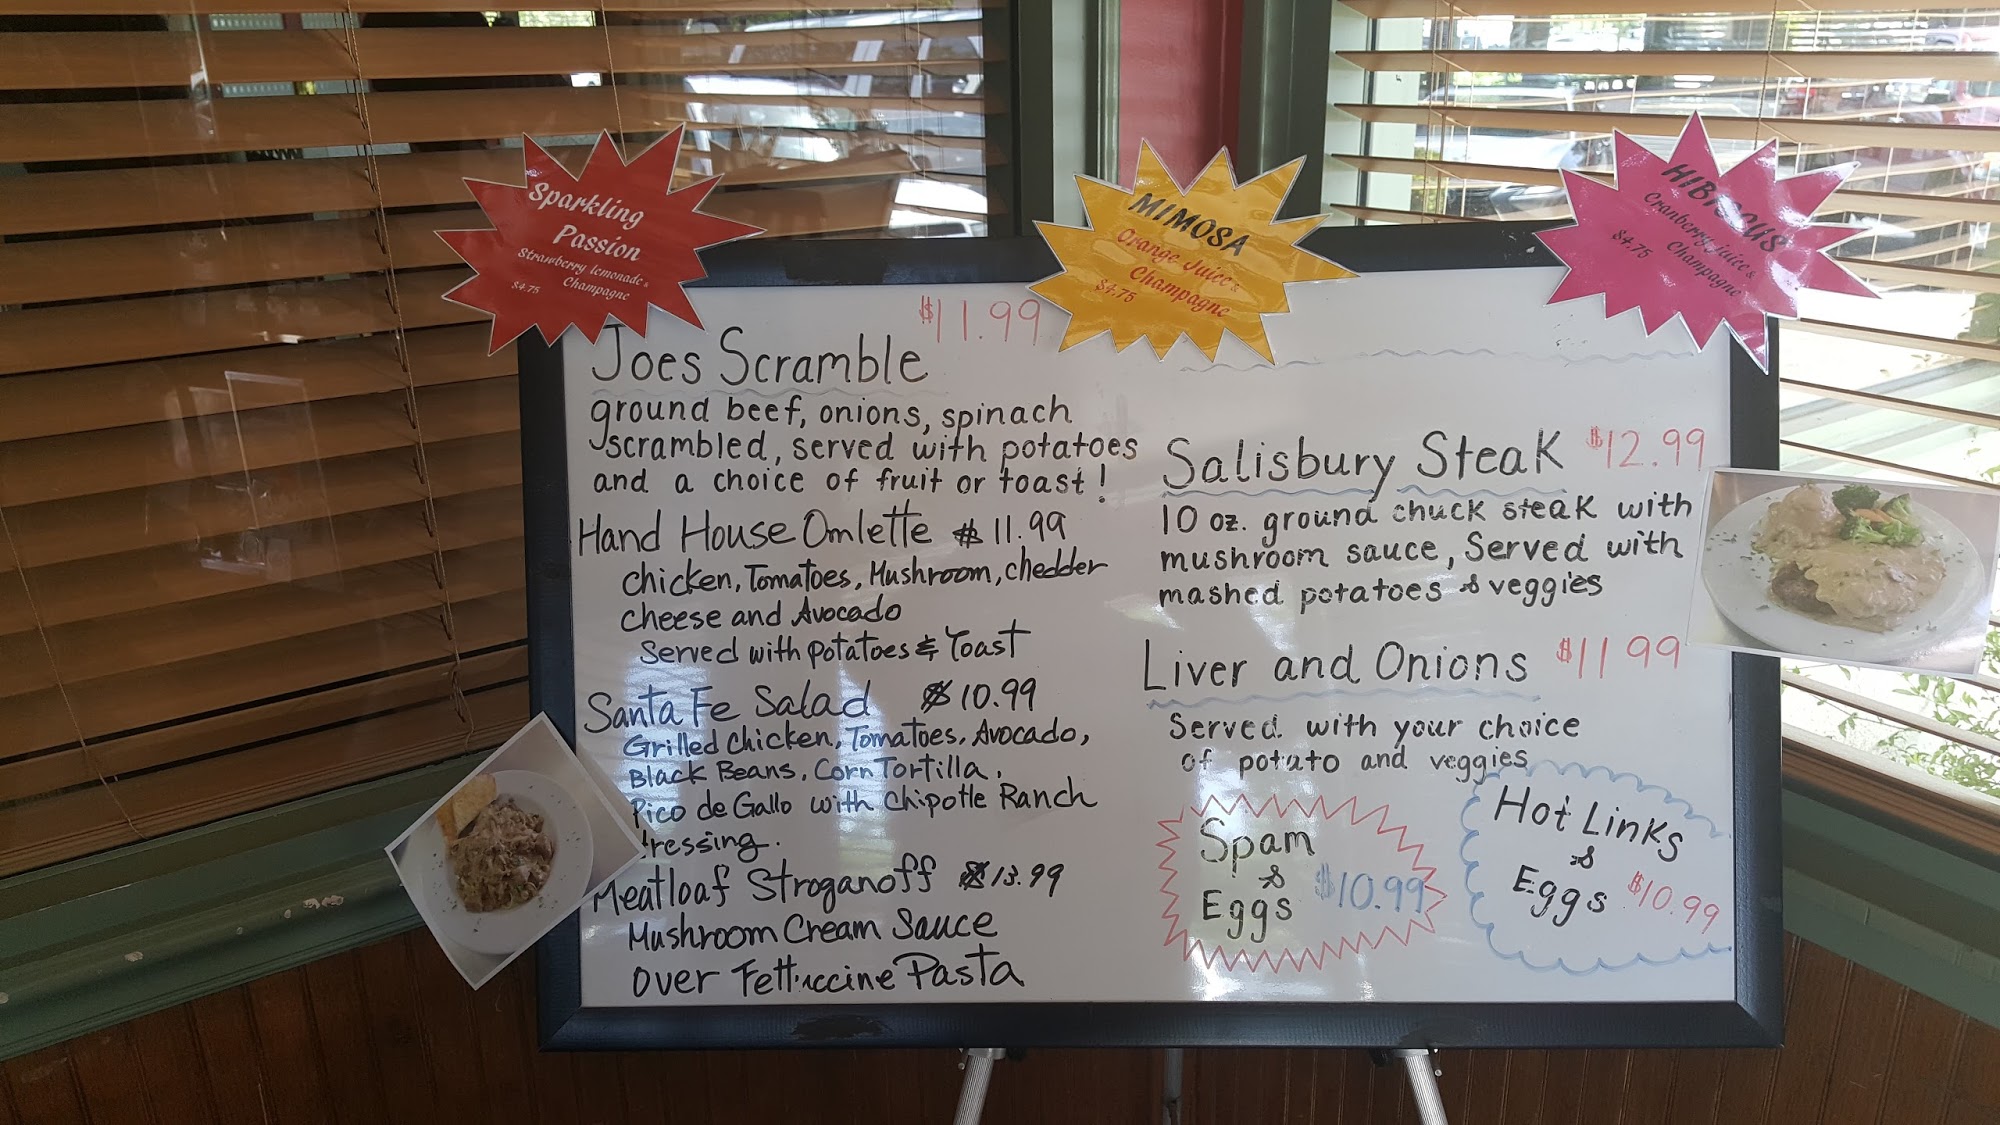 Sparkling
Passion
Strawberry lemonade &
Champagne
$4.75
MIMOSA
Orange Juice &
Champagne
$4.75
HIBISCUS
Cranberry juice &
Champagne
$4.75
$11.99
Joes Scramble
ground beef, onions, spinach
scrambled, served with potatoes
and a choice of fruit or toast!
Hand House Omlette $11.99
chicken, Tomatoes, Mushroom, chedder
cheese and Avocado
Served with potatoes & Toast
Santa Fe Salad $10.99
Grilled chicken, Tomatoes, Avocado,
Black Beans, Corn Tortilla,
Pico de Gallo with Chipotle Ranch
dressing.
Meatloaf Stroganoff $13.99
Mushroom Cream Sauce
over Fettuccine Pasta
Salisbury Steak $12.99
10 oz. ground chuck steak with
mushroom sauce, Served with
mashed potatoes & veggies
Liver and Onions $11.99
Served with your choice
of potato and veggies
Spam
&
Eggs $10.99
Hot Links
&
Eggs $10.99